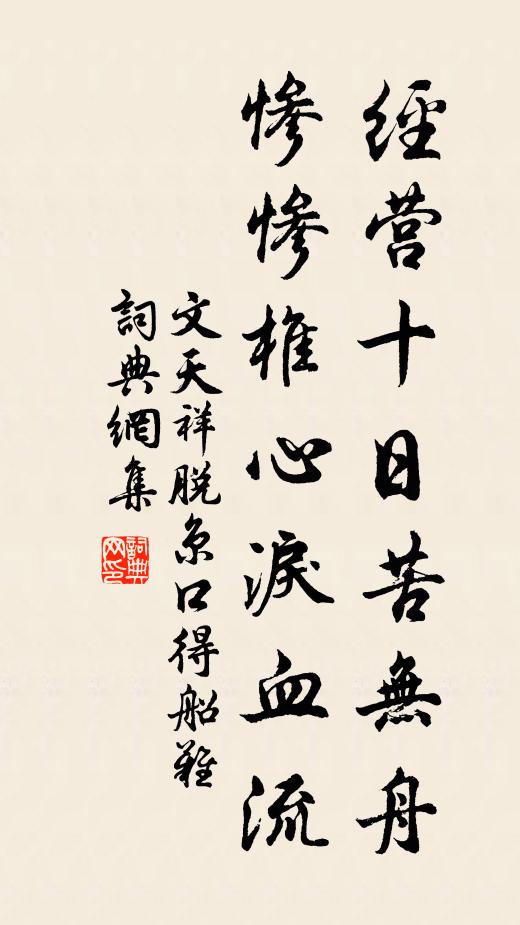 經营十日苦無舟
惨惨椎心淚血流
文天祥脱京口得船難
詞典網集
詞典网印